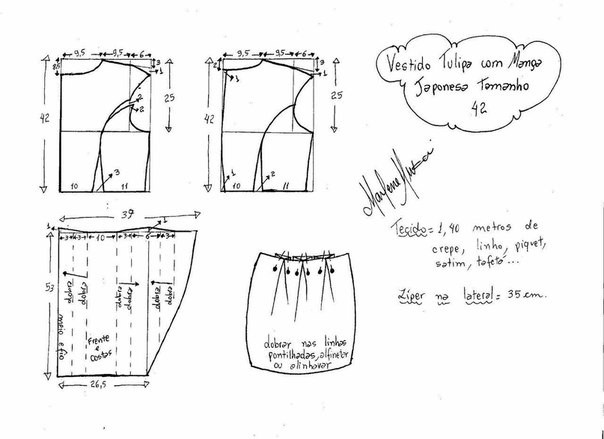 9,5 9,5 6
8,5
3
1
2
2
42
25
3
10 11
9,5 9,5 6
2
3
1
1
42
25
1
2
10 11
Vestido Tulipa com Manga
Japonesa Tamanho
42
Marlene Mukai
Tecido = 1,40 metros de
crepe, linho, piquet,
satim, tafetá...
Zíper na lateral = 35 cm.
37
1
1
3 3 10 3 3 6 3 3
53
dobra
dobra
dobra
dobra
dobra
dobra
meio e fio
Frente
e
Costas
26,5
dobrar nas linhas
pontilhadas, alfinetar
ou alinhavar